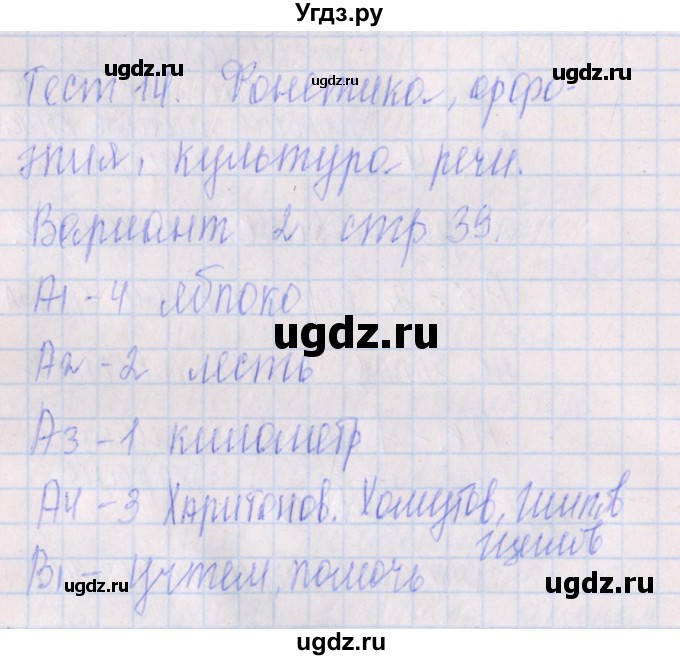 Угдз.ру
Тест 14. Фонетика, орфо-
эпия, культура речи.
Вариант 2 стр 39.
А1 - 4 яблоко
А2 - 2 лесть
А3 - 1 километр
А4 - 3 Харитонов. Хомутов,
В1 - помочь
ugdz.ru
ugdz.ru
ugdz.ru
ugdz.ru
ugdz.ru
ugdz.ru
ugdz.ru
ugdz.ru